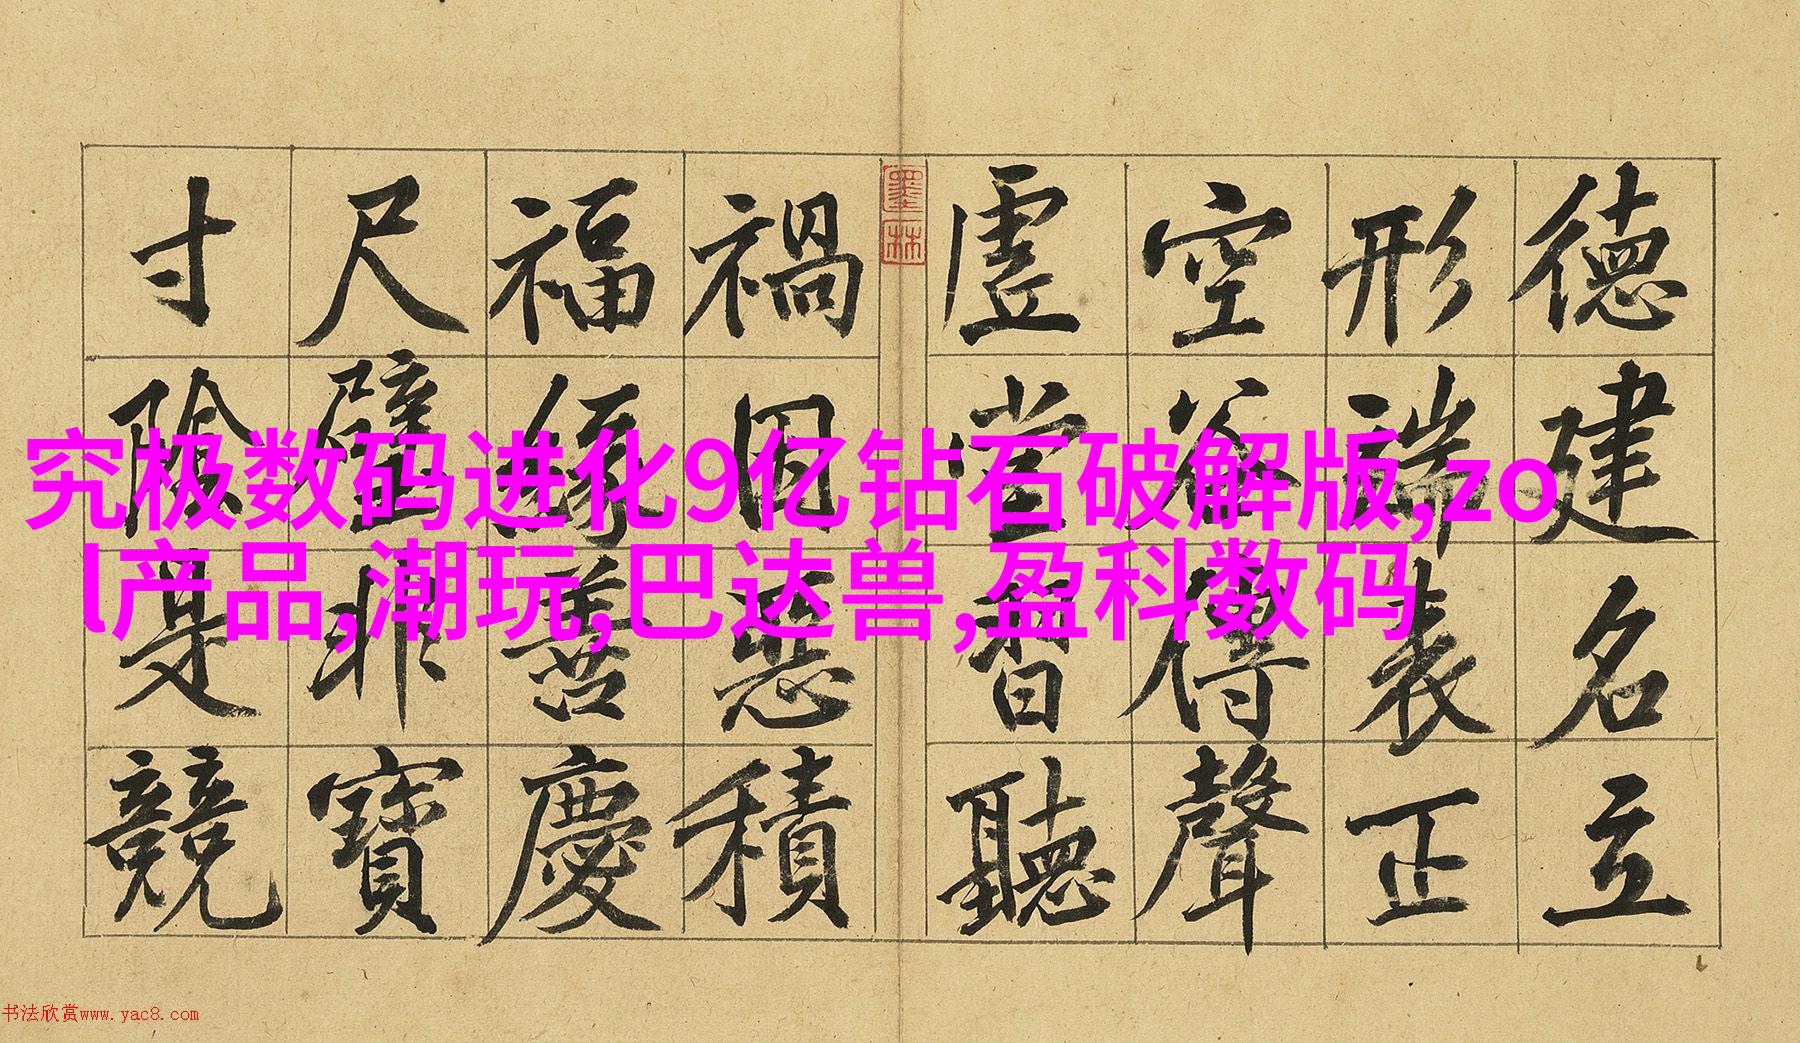 德建名立
形端表正
空谷傳聲
虛堂習聽
墨林
禍因惡積
福緣善慶
尺璧非寶
寸陰是競
究极数码进化9亿钻石破解版,zo
l产品,潮玩,巴达兽,盈科数码
书法欣赏www.yac8.com